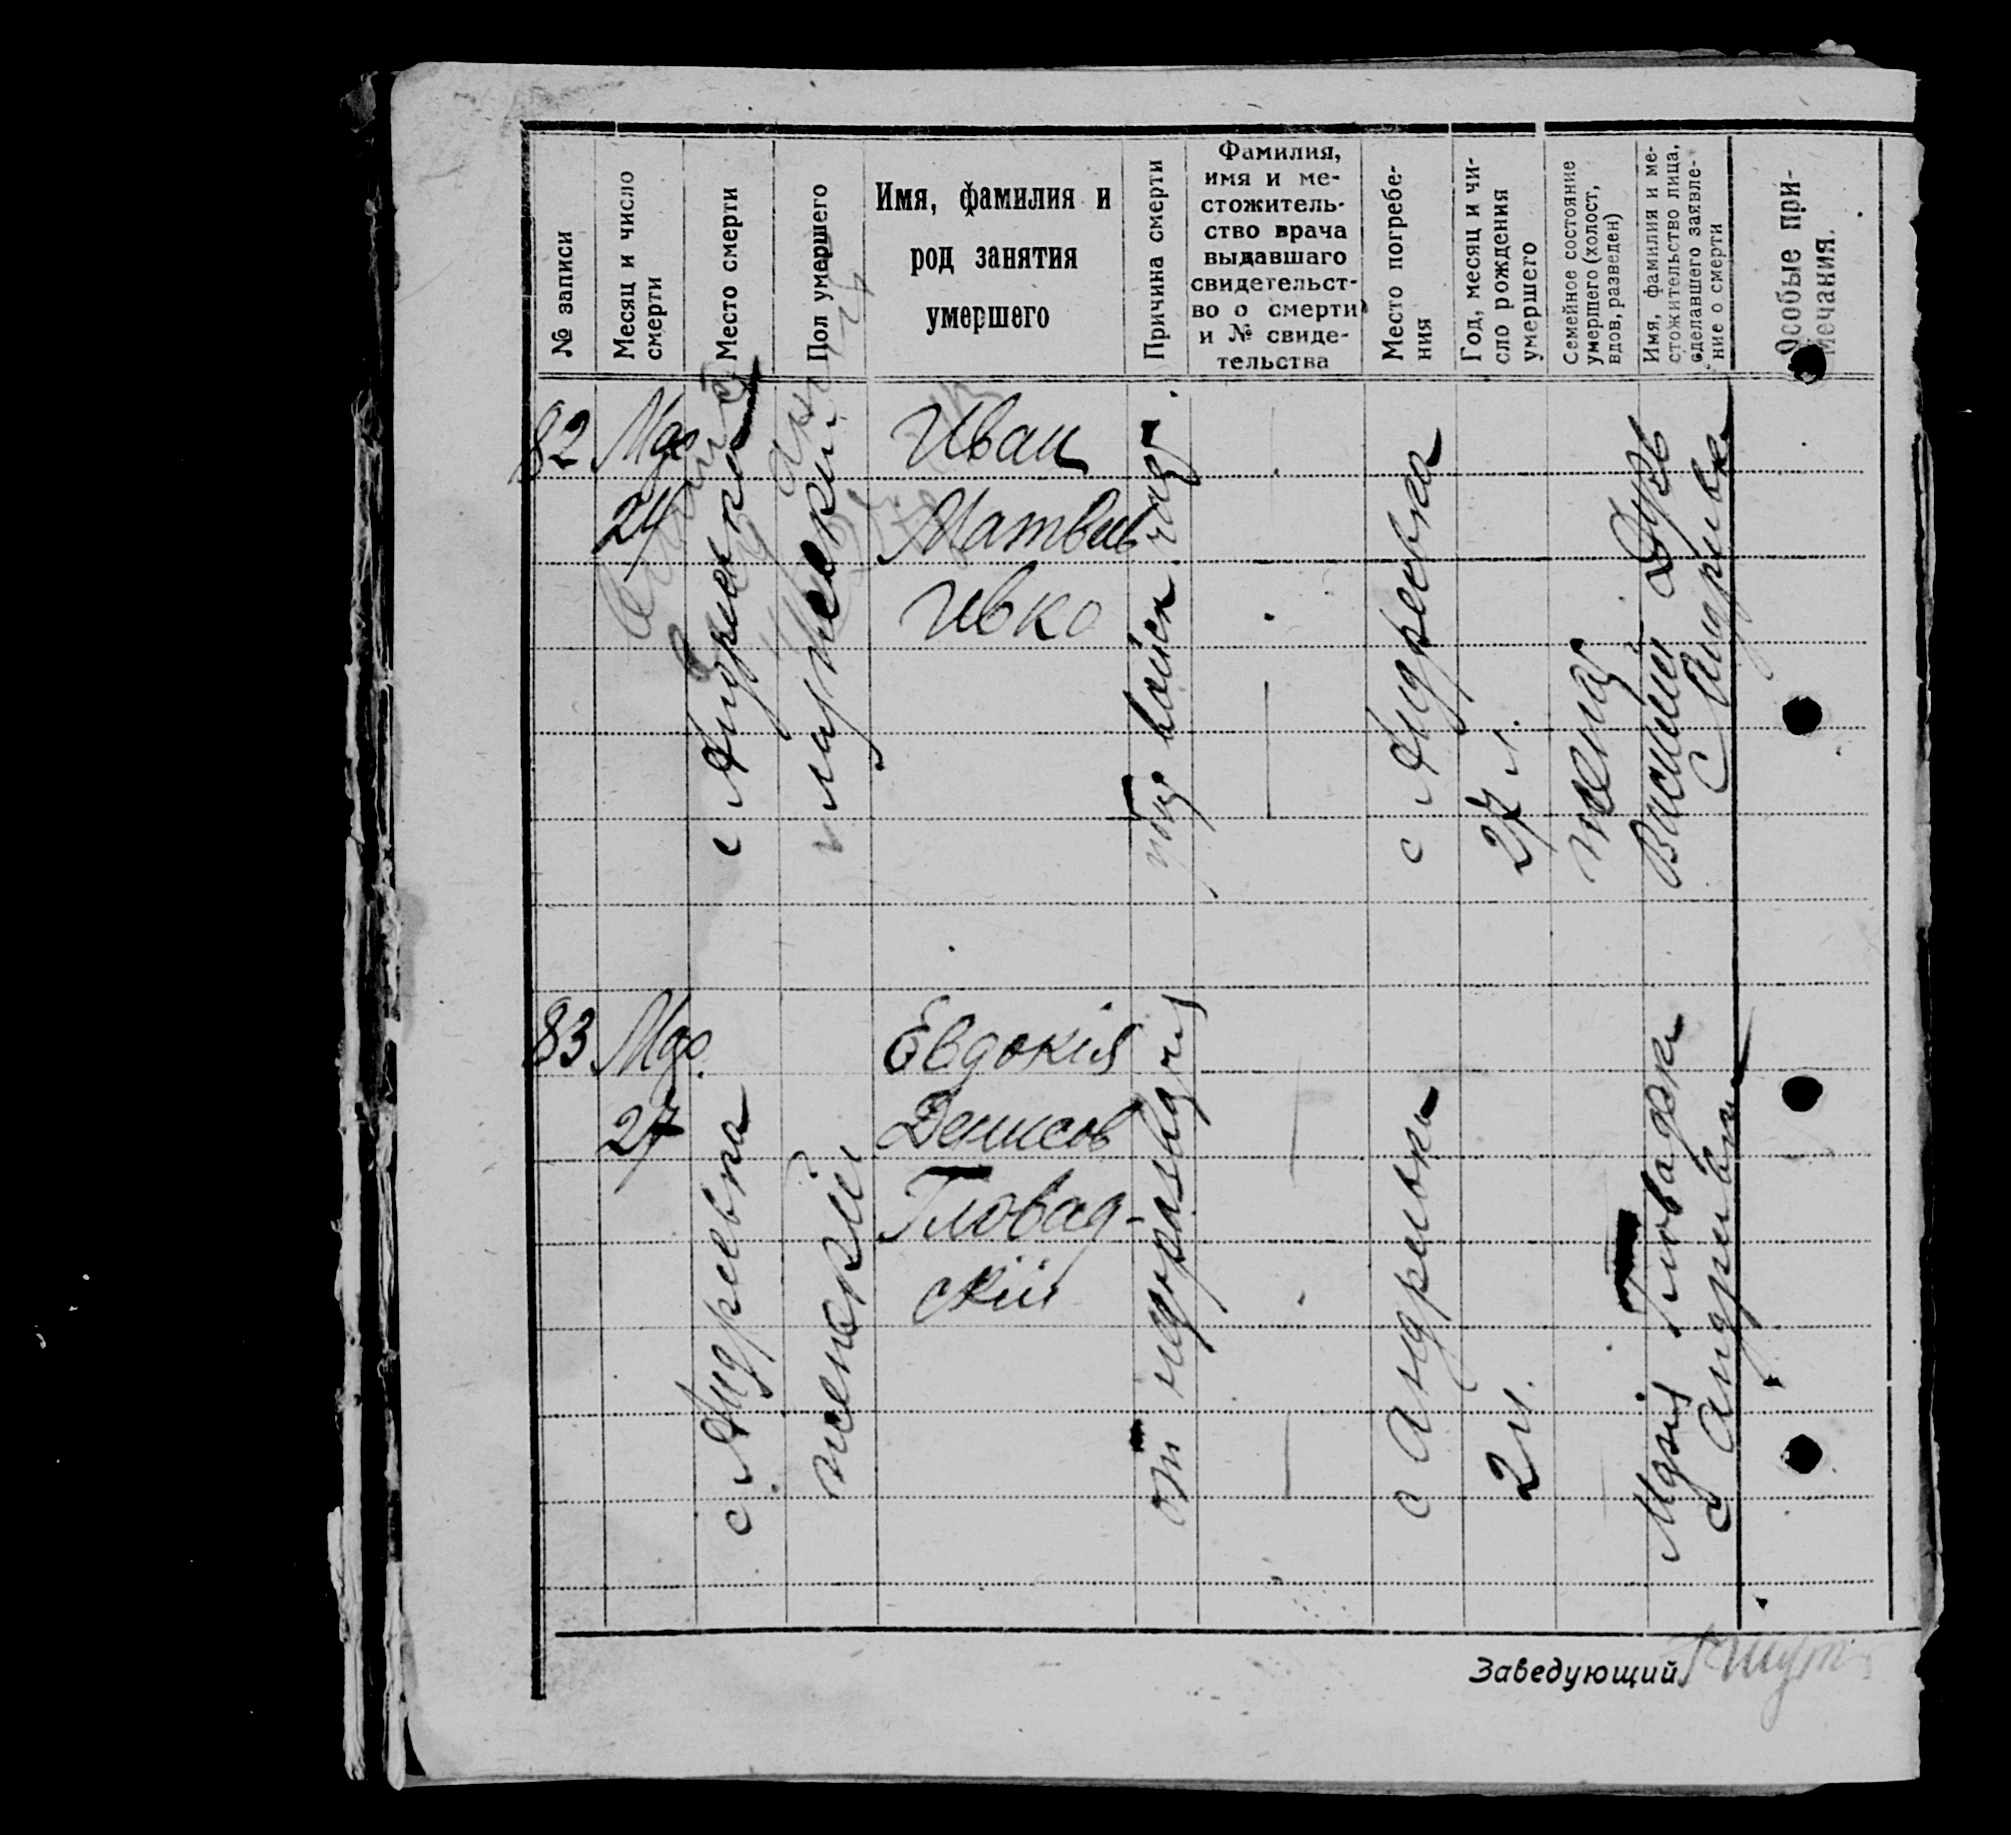 № записи
Месяц и число
смерти
Место смерти
Пол умершего
Имя, фамилия и
род занятия
умершего
Причина смерти
Фамилия,
имя и ме-
стожитель-
ство врача
выдавшаго
свидетельст-
во о смерти
и № свиде-
тельства
Место погребе-
ния
Год, месяц и чи-
сло рождения
умершего
Семейное состояние
умершего (холост,
вдов, разведен)
Имя, фамилия и ме-
стожительство лица,
сделавшего заявле-
ние о смерти
Особые при-
мечания.
82
24
с Андреевка
мужески
Иван
Матвеев
Ивко
с Андреевка
27 л.
женат
Василий
с Андриевк
83
27
с Андреевка
женский
Евдокія
Денисов
Гловад-
скій
от
с Андреевки
2 м.
Гловадск
с Андриевки
Заведующий